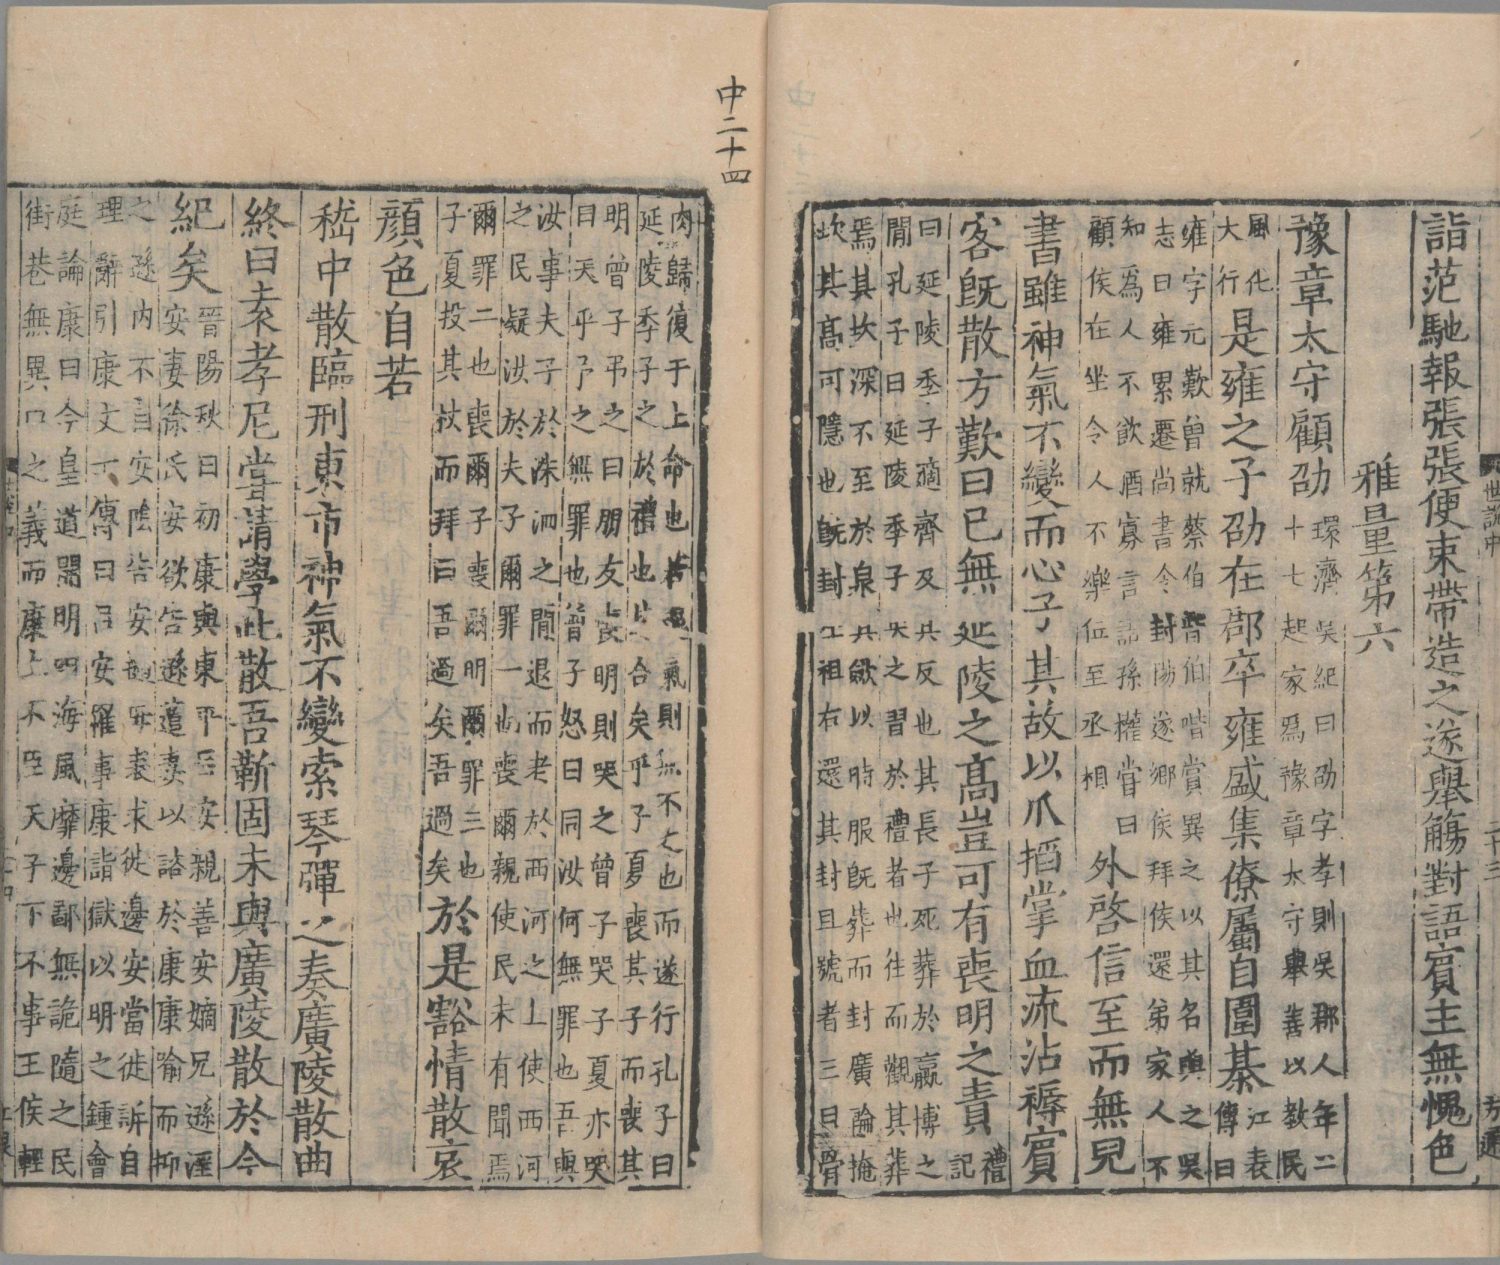 詣范馳報張張便束帶造之遂舉觴對語賓主無愧色
雅量第六
豫章太守顧劭
環濟吳紀曰劭字孝則吳郡人年二
十七起家爲豫章太守舉善以教民
風化
大行
是雍之子劭在郡卒雍盛集僚屬自圍棊
江表
傳曰
雍字元歎曾就蔡伯喈伯喈賞異之以其名與之吳
志曰雍累遷尚書令封陽遂鄉侯拜侯還第家人不
知爲人不飲酒寡言語孫權嘗曰
顧侯在坐令人不樂位至丞相
外啓信至而無兒
書雖神氣不變而心了其故以爪掐掌血流沾褥賓
客旣散方歎曰已無延陵之高豈可有喪明之責
禮
記
曰延陵季子適齊及其反也其長子死葬於嬴博之
閒孔子曰延陵季子吳之習於禮者也往而觀其葬
焉其坎深不至於泉其斂以時服旣葬而封廣論掩
坎其高可隱也旣封左袒右還其封且號者三曰骨
中二十四
肉歸復于上命也若魂氣則無不之也而遂行孔子曰
延陵季子之於禮也其合矣乎子夏喪其子而喪其
明曾子弔之曰朋友喪明則哭之曾子哭子夏亦哭
曰天乎予之無罪也曾子怒曰同汝何無罪也吾與
汝事夫子於洙泗之閒退而老於西河之上使西河
之民疑汝於夫子爾罪一也喪爾親使民未有聞焉
爾罪二也喪爾子喪爾明爾罪三也
子夏投其杖而拜曰吾過矣吾過矣
於是豁情散哀
顏色自若
嵇中散臨刑東市神氣不變索琴彈之奏廣陵散曲
終曰袁孝尼嘗請學此散吾靳固未與廣陵散於今
紀矣
晉陽秋曰初康與東平呂安親善安嫡兄遜淫
安妻徐氏安欲告遜遣妻以諮於康康喻而抑
之遜內不自安陰告安撾母表求徙邊安當徙訴自
理辭引康文士傳曰呂安罹事康詣獄以明之鍾會
庭論康曰今皇道開明四海風靡邊鄙無詭隨之民
街巷無異口之義而康上不臣天子下不事王侯輕